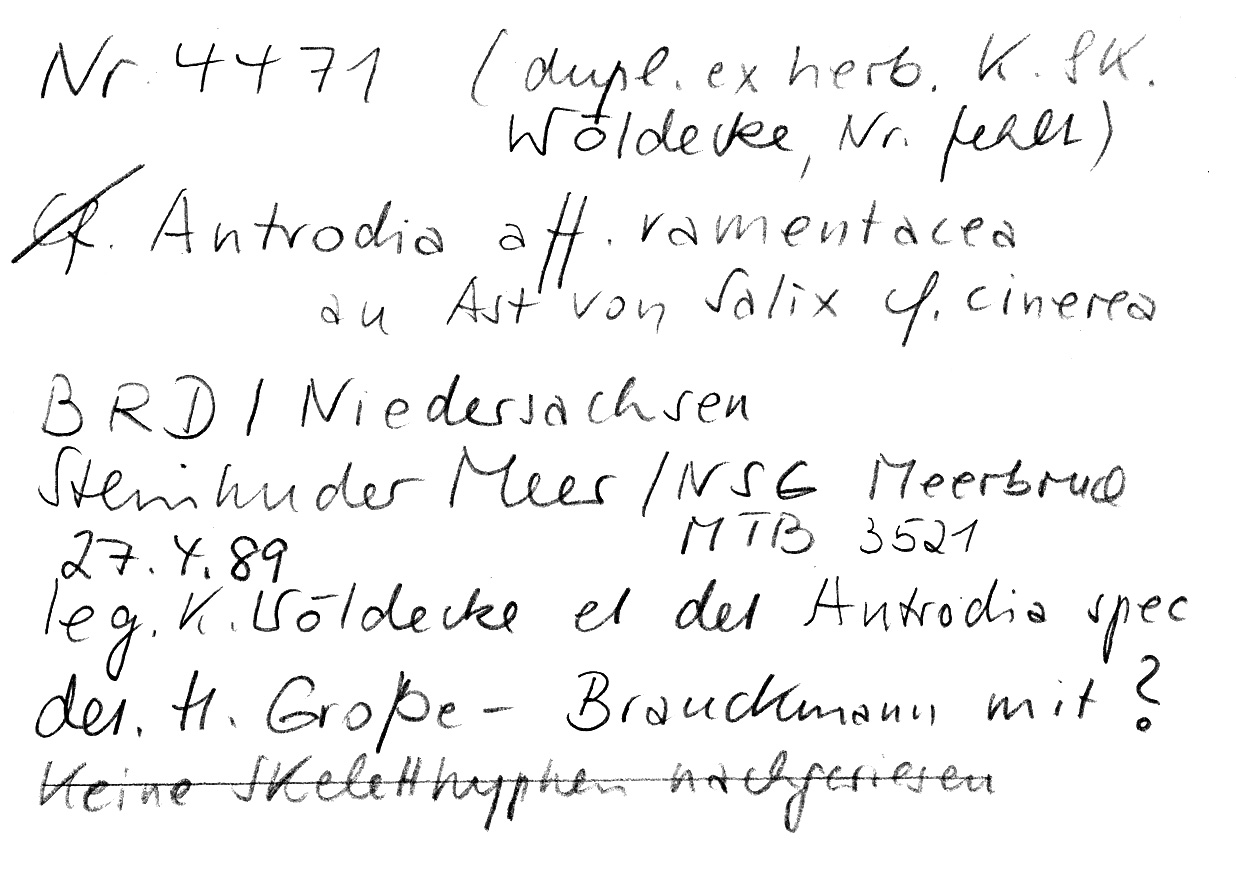 Nr. 4471 (dupl. ex herb. K. & K.
Wöldecke, Nr. fehlt)
Cf. Antrodia aff. ramentacea
an Ast von Salix cf. cinerea
BRD / Niedersachsen
Steinhuder Meer / NSG Meerbruch
27.4.89 MTB 3521
leg. K. Wöldecke et det Antrodia spec
det. H. Große-Brauckmann mit ?
Keine Skeletthyphen nachgewiesen